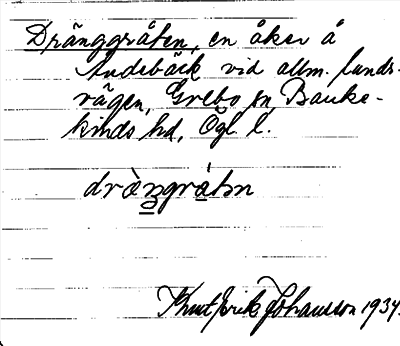 Dränggråten, en åker å
Sudebäck vid allm. lands-
vägen, Grebo sn, Banke-
kinds hd, Ögl. l.
drèngråtən
Knut Erik Johansson 1934.